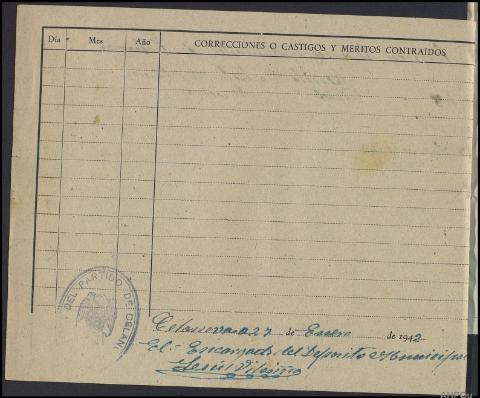 Día Mes Año CORRECCIONES O CASTIGOS Y MERITOS CONTRAÍDOS
DEL PARTIDO DE CELAN
Celanova a 27 de Enero de 1942
El Encargado del Deposito Municipal